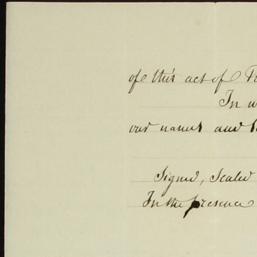 of this act of
In
our names and
Signed, Sealed
In the presence